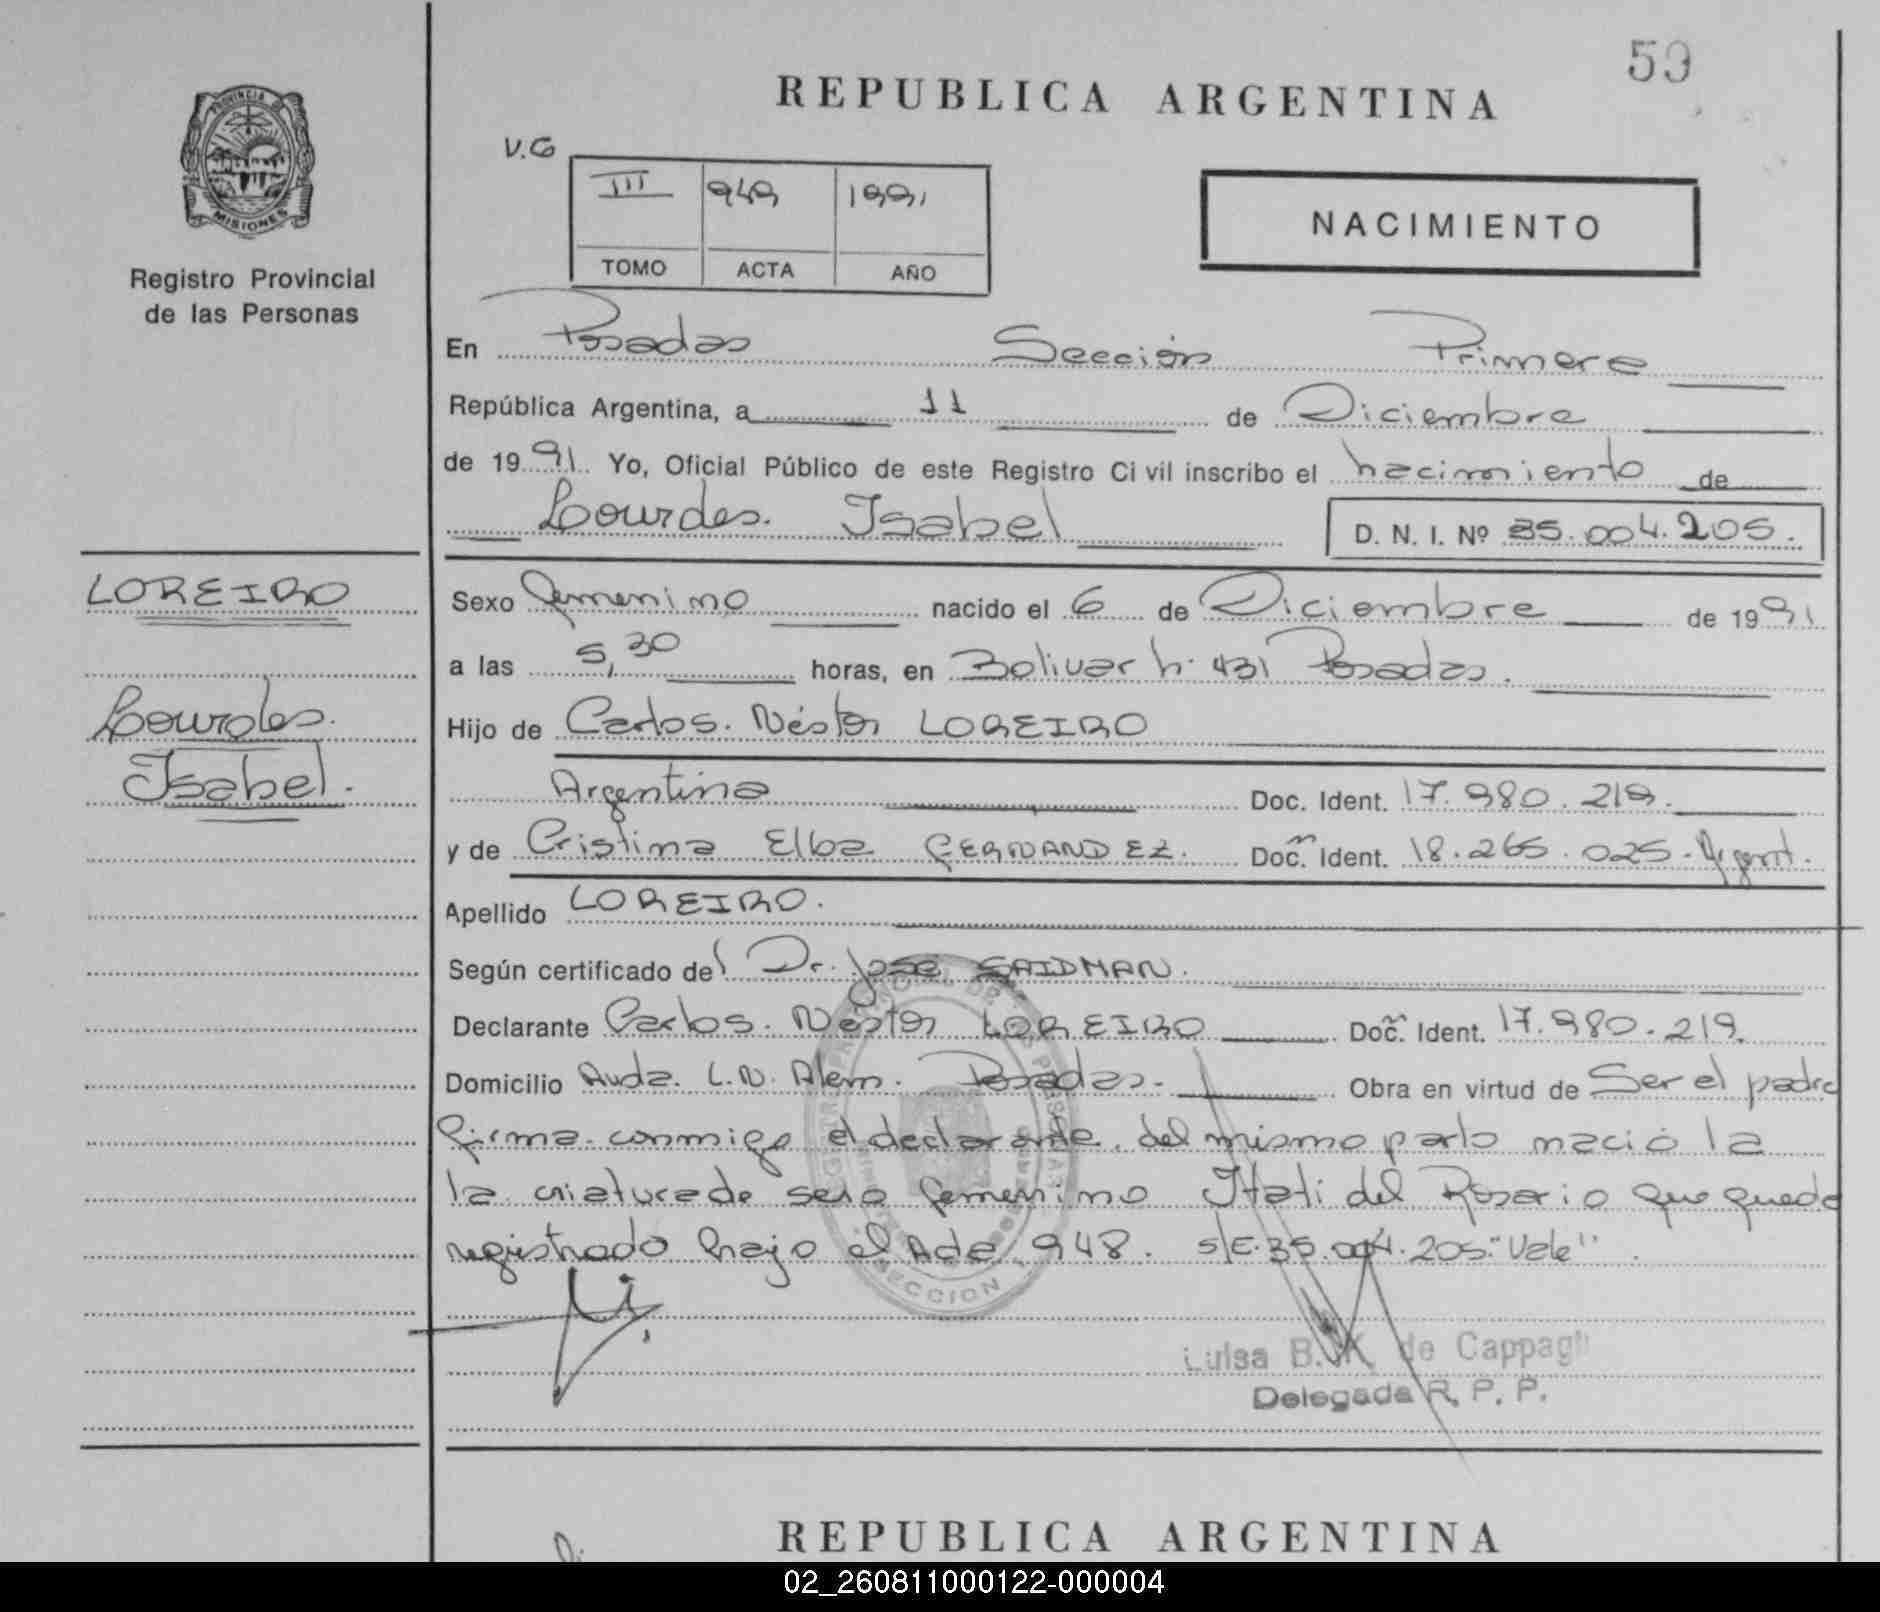 59
REPUBLICA ARGENTINA
PROVINCIA DE
MISIONES
Registro Provincial
de las Personas
V.G
III 949 1991
TOMO ACTA AÑO
NACIMIENTO
En Posadas Sección Primera
República Argentina, a 11 de Diciembre
de 1991. Yo, Oficial Público de este Registro Civil inscribo el nacimiento de
Lourdes. Isabel D. N. I. Nº 35.004.205.
LOREIRO
Sexo femenino nacido el 6 de Diciembre de 1991
a las 5,30 horas, en Bolivar n. 431 Posadas.
Lourdes.
Isabel.
Hijo de Carlos. Néstor LOREIRO
Argentina Doc. Ident. 17.980.219.
y de Cristina Elba FERNANDEZ. Doc. Ident. 18.265.025. Argent.
Apellido LOREIRO.
Según certificado del Dr. José SAIDMAN.
Declarante Carlos. Nestor LOREIRO Doc. Ident. 17.980.219.
Domicilio Avda. L.N. Alem. Posadas. Obra en virtud de Ser el padre
firma conmigo el declarante. del mismo parto nació la
la criatura de sexo femenino Itati del Rosario que queda
registrado bajo el Acta 948. S/E.35.004.205."Vale".
SECCION 1
Luisa B. K. de Cappagli
Delegada R. P. P.
REPUBLICA ARGENTINA
02_260811000122-000004